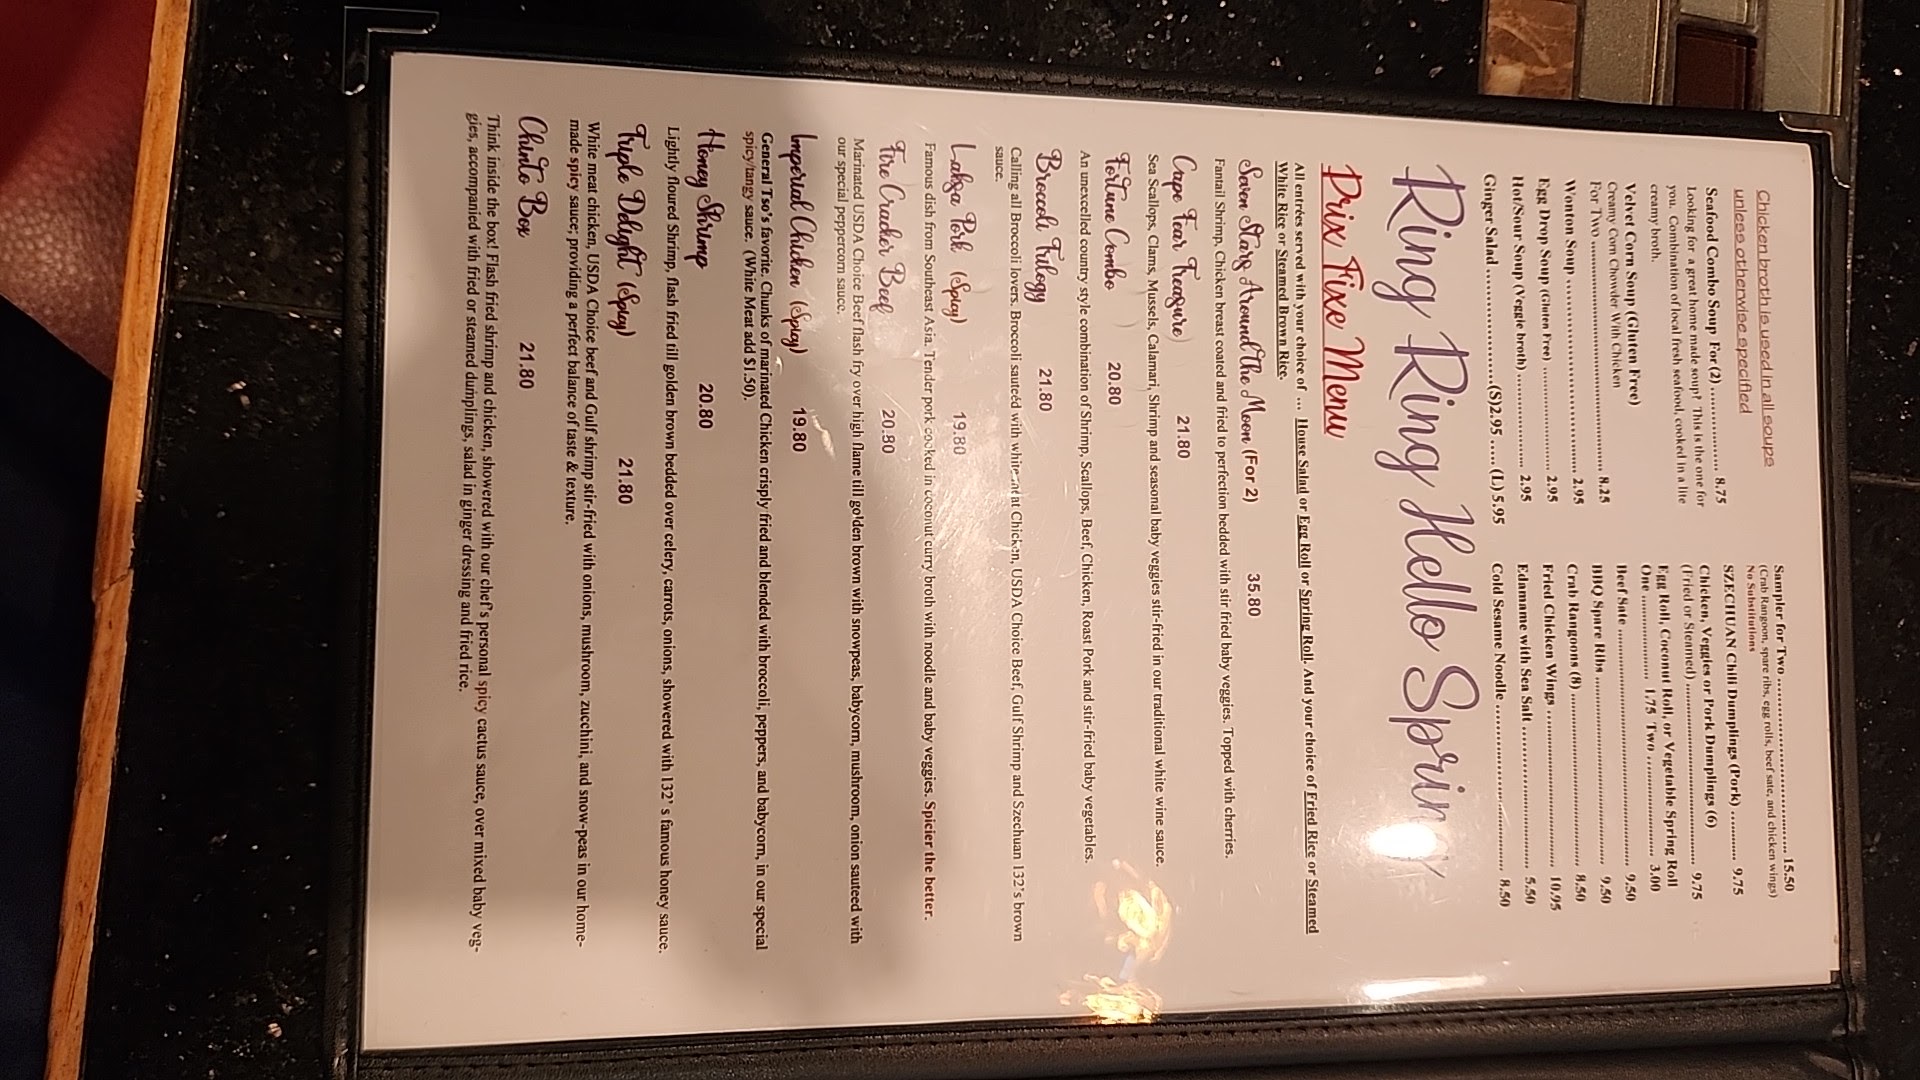 Chicken broth is used in all soups
unless otherwise specified
Seafood Combo Soup For (2) .......... 8.75
Looking for a great home made soup? This is the one for
you. Combination of local fresh seafood, cooked in a lite
creamy broth.
Velvet Corn Soup (Gluten Free)
Creamy Corn Chowder With Chicken
For Two .......... 8.25
Wonton Soup .......... 2.95
Egg Drop Soup (Gluten Free) .......... 2.95
Hot/Sour Soup (Veggie broth) .......... 2.95
Ginger Salad .......... (S)2.95 ..... (L)5.95
Sampler for Two .......... 15.50
(Crab Rangoon, spare ribs, egg rolls, beef sate, and chicken wings)
No Substitutions
SZECHUAN Chili Dumplings (Pork) .......... 9.75
Chicken, Veggies or Pork Dumplings (6)
(Fried or Steamed) .......... 9.75
Egg Roll, Coconut Roll, or Vegetable Spring Roll
One .......... 1.75 Two .......... 3.00
Beef Sate .......... 9.50
BBQ Spare Ribs .......... 9.50
Crab Rangoons (8) .......... 8.50
Fried Chicken Wings .......... 10.95
Edamame with Sea Salt .......... 5.50
Cold Sesame Noodle .......... 8.50
Ring Ring Hello Spring
Prix Fixe Menu
All entrées served with your choice of ... House Salad or Egg Roll or Spring Roll. And your choice of Fried Rice or Steamed
White Rice or Steamed Brown Rice.
Seven Stars Around The Moon (For 2) 35.80
Fantail Shrimp, Chicken breast coated and fried to perfection bedded with stir fried baby veggies. Topped with cherries.
Cape Fear Treasure) 21.80
Sea Scallops, Clams, Mussels, Calamari, Shrimp and seasonal baby veggies stir-fried in our traditional white wine sauce.
Fortune Combo 20.80
An unexcelled country style combination of Shrimp, Scallops, Beef, Chicken, Roast Pork and stir-fried baby vegetables.
Broccoli Trilogy 21.80
Calling all Broccoli lovers. Broccoli sautéed with white meat Chicken, USDA Choice Beef, Gulf Shrimp and Szechuan 132's brown
sauce.
Laksa Pork (Spicy) 19.80
Famous dish from Southeast Asia. Tender pork cooked in coconut curry broth with noodle and baby veggies. Spicier the better.
Fire Cracker Beef 20.80
Marinated USDA Choice Beef flash fry over high flame till golden brown with snowpeas, babycorn, mushroom, onion sauteed with
our special peppercorn sauce.
Imperial Chicken (Spicy) 19.80
General Tso's favorite. Chunks of marinated Chicken crisply fried and blended with broccoli, peppers, and babycorn, in our special
spicy/tangy sauce. (White Meat add $1.50).
Honey Shrimp 20.80
Lightly floured Shrimp, flash fried till golden brown bedded over celery, carrots, onions, showered with 132' s famous honey sauce.
Triple Delight (Spicy) 21.80
White meat chicken, USDA Choice beef and Gulf shrimp stir-fried with onions, mushroom, zucchini, and snow-peas in our home-
made spicy sauce; providing a perfect balance of taste & texture.
Chinto Box 21.80
Think inside the box! Flash fried shrimp and chicken, showered with our chef's personal spicy cactus sauce, over mixed baby veg-
gies, accompanied with fried or steamed dumplings, salad in ginger dressing and fried rice.